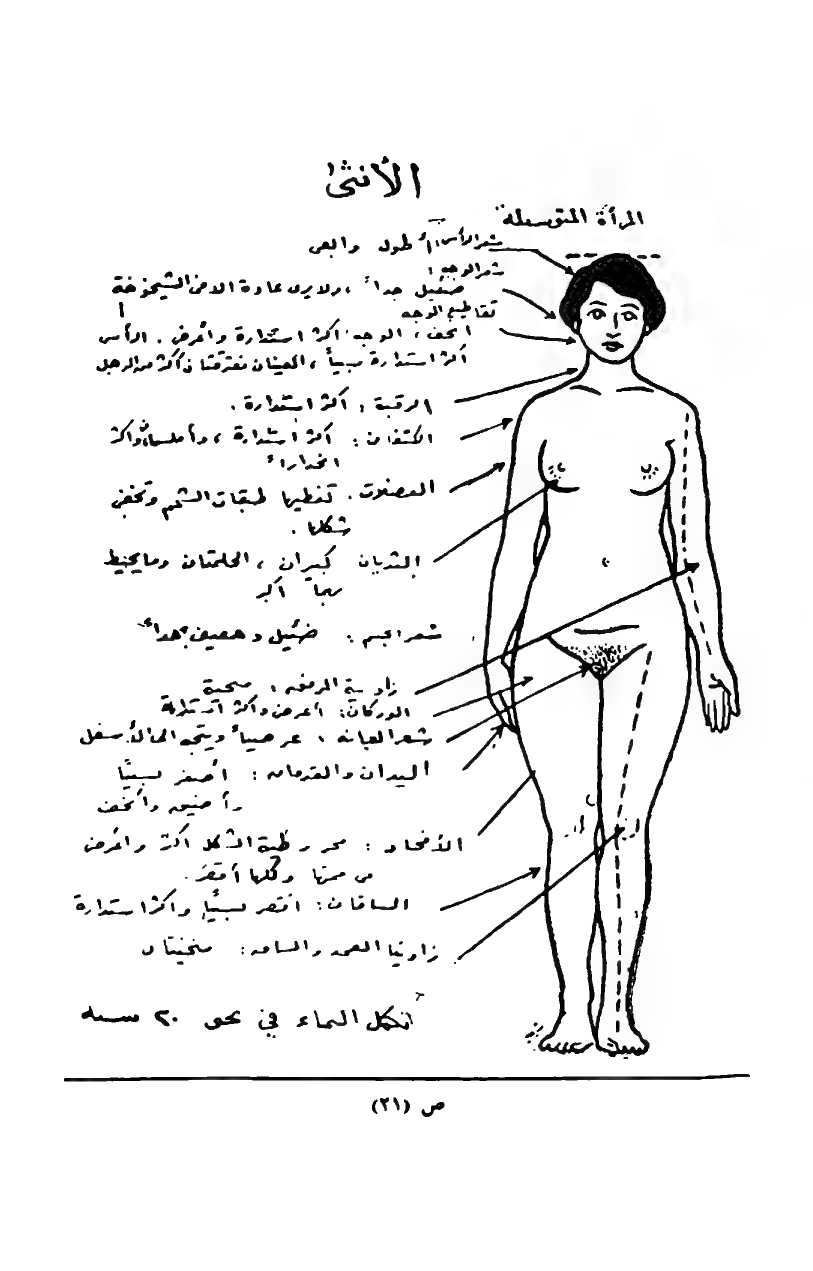 الأنثى
المرأة المتوسطة
شعر الرأس: أطول
شعر الوجه:
ضئيل جداً، ولا يرى عادة الا في الشيخوخة
تقاطيع الوجه
أنحف، الوجه: أكثر استدارة وأعرض. الرأس
أكثر استدارة نسبياً، العينان أكثر من الرجل
الرقبة: أكثر استدارة.
الكتفان: أكثر استدارة، وأملسان وأكثر
انحداراً
العضلات. تغطيها طبقات الشحم وتخفي
شكلها.
الثديان كبيران، الحلمتان وما يحيط
بهما أكبر
شعر الجسم: ضئيل وخفيف جداً
زاوية المرفق: منحنية
الوركان: أعرض وأكثر استدارة
شعر العانة: عرضياً ويتجه الى الأسفل
اليدان والقدمان: أصغر نسبياً
وأضيق وأنحف
الأفخاذ: مخروطية الشكل أكثر وأعرض
من قمتها وكلها أقصر.
الساقان: أقصر نسبياً وأكثر استدارة
زاويتا الفخذ والساق: منحنيتان
تكمل النماء في نحو ٢٠ سنة
ص (٢١)